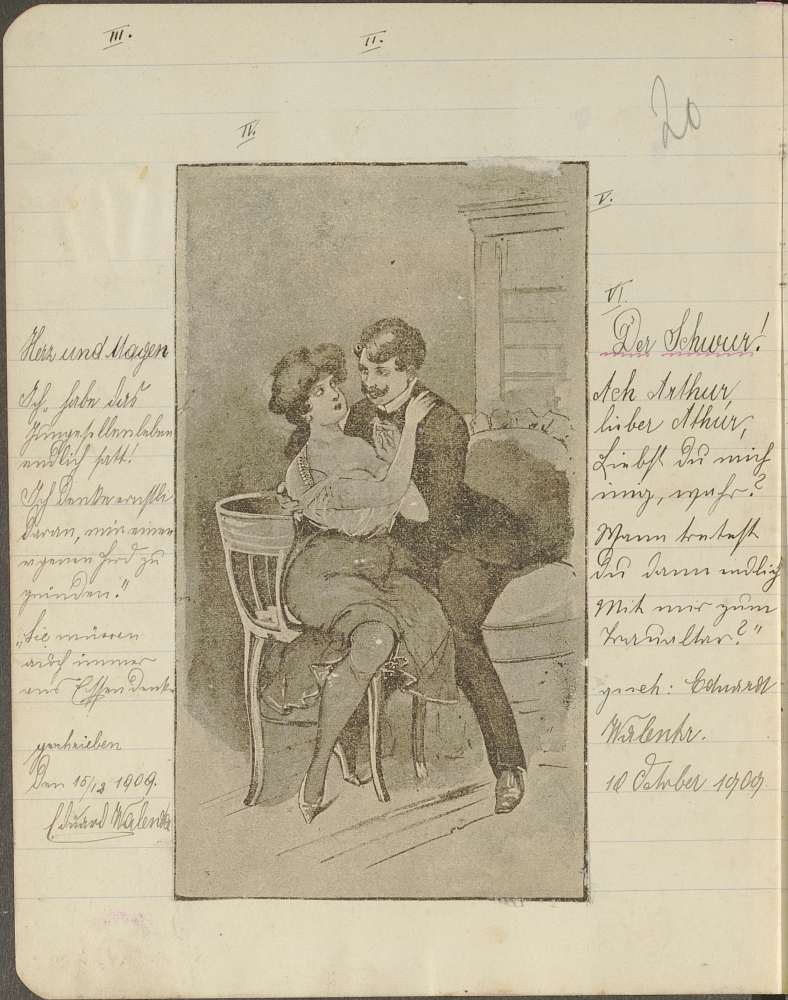 III.
II.
20
IV.
V.
Herz und Magen
Ich habe das
Junggesellenleben
endlich satt!
Ich denke ernstli
daran, mir einen
eigenen Herd zu
gründen."
"Sie müssen
auch immer
ans Essen denken
geschrieben
Den 15/12 1909.
Eduard
VI.
Der Schwur!
Ach Arthur,
lieber Athur,
Liebst Du mich
inig, wahr?
Wann trittst
Du dann endlich
Mit mir zum
Traualtar?"
gesch: Eduardt
18 October 1909